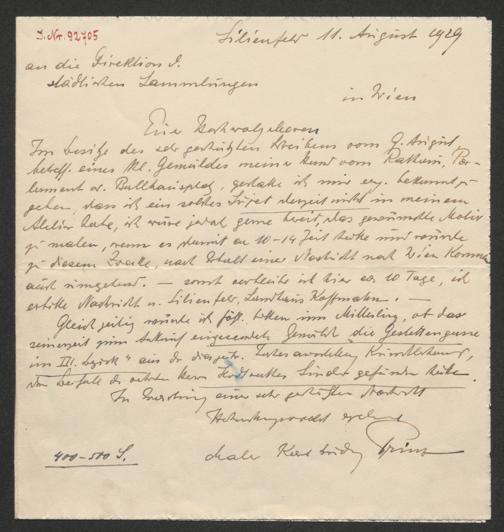 J. Nr. 92705
Lilienfeld 11. August 1929
an die Direktion d.
städtischen Sammlungen
in Wien
Euer Hochwohlgeboren
Im Besitze des sehr geschätzten Schreibens vom 9. August,
betreff. eines kl. Gemäldes meiner Hand vom Rathaus, Par-
lament od. Ballhausplatz, gestatte ich mir erg. bekannt zu
geben, dass ich ein solches Sujet derzeit nicht in meinem
Atelier habe, ich wäre jedoch gerne bereit, das gewünschte Motiv
zu malen, wenn es damit ca 10-14 Zeit hätte und würde
zu diesem Zwecke, nach Erhalt einer Nachricht nach Wien kommen
auch umgehend. — sonst verbleibe ich hier ca 10 Tage, ich
erbitte Nachricht n. Lilienfeld, Landhaus Hoffmann. —
Gleichzeitig würde ich höfl. bitten um Mitteilung, ob das
seinerzeit zum Ankauf eingereichte Gemälde "die Gestettengasse
im III. Bezirk" aus der diesjähr. Künstlerhaus,
den Beifall des Herrn gefunden hätte.
In Erwartung einer sehr geschätzten Nachricht
Hochachtungsvoll ergebenst
Maler Karl Ludwig Prinz
400-500 S.